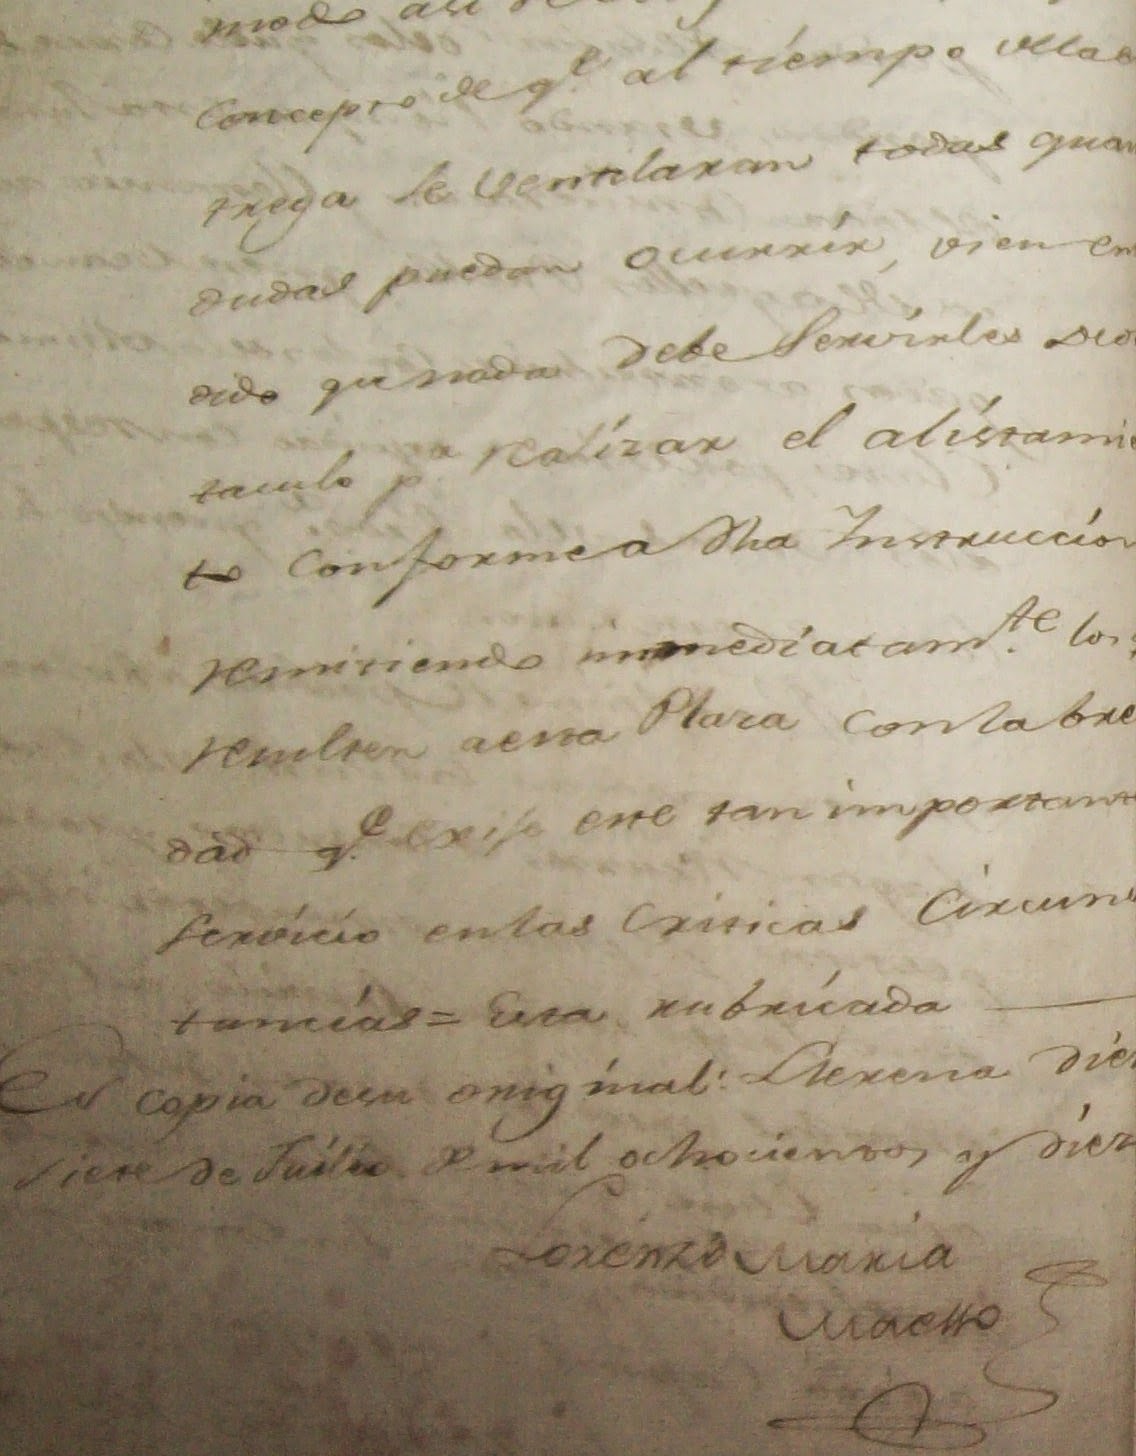 modo
concepto de q.e al tiempo
trega se ventilaran todas quan
dudas puedan ocurrir, vien en
dido que nada debe servirles de o
taculo p. realizar el alistamie
to conforme a dha Instruccion
remitiendo inmediatam.te los
resulten a esta Plaza con la breve
dad q.e exije este tan importante
servicio en las criticas circuns
tancias = Esta rubricada
Es copia de su original: Llerena diez
siete de Julio de mil ochocientos y diez
Lorenzo Maria
Maesso